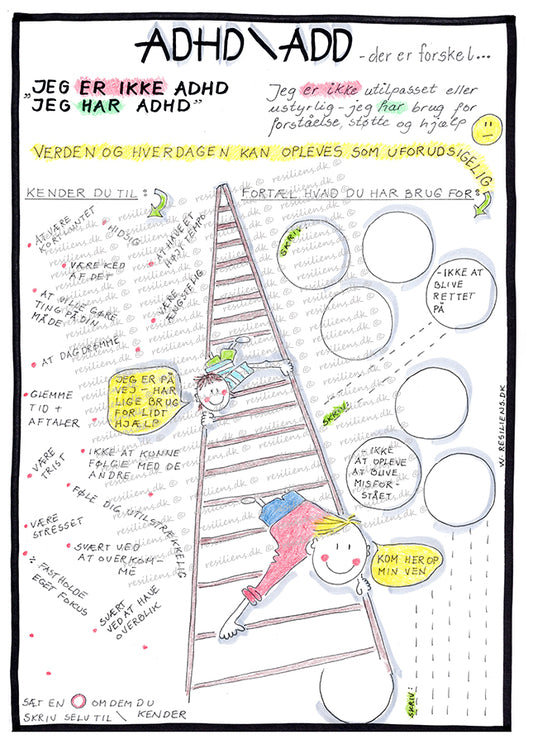 ADHD\ADD - der er forskel...
"JEG ER IKKE ADHD
JEG HAR ADHD"
Jeg er ikke utilpasset eller
ustyrlig - jeg har brug for
forståelse, støtte og hjælp
VERDEN OG HVERDAGEN KAN OPLEVES SOM UFORUDSIGELIG
KENDER DU TIL:
FORTÆL HVAD DU HAR BRUG FOR:
AT VÆRE
FORPUNTET
HIDSIG
AT HAVE ET
HØJT TEMPO
VÆRE KED
AF DET
VÆRE
ÆNGSTELIG
AT VILLE GØRE
TING PÅ DIN
MÅDE
AT DAGDRØMME
GLEMME
TID +
AFTALER
JEG ER PÅ
VEJ - HAR
LIGE BRUG
FOR LIDT
HJÆLP
VÆRE
TRIST
IKKE AT KUNNE
FØLGE MED DE
ANDRE
FØLE DIG UTILSTRÆKKELIG
VÆRE
STRESSET
SVÆRT VED
AT OVERKOM-
ME
÷ FASTHOLDE
EGET FOKUS
SVÆRT
VED AT HAVE
OVERBLIK
SKRIV
- IKKE AT
BLIVE
RETTET
PÅ
SKRIV:
- IKKE
AT OPLEVE
AT BLIVE
MISFOR-
STÅET
KOM HER OP
MIN VEN
SKRIV:
SÆT EN O OM DEM DU
SKRIV SELV TIL \ KENDER
W. RESILIENS.DK
resiliens.dk ©